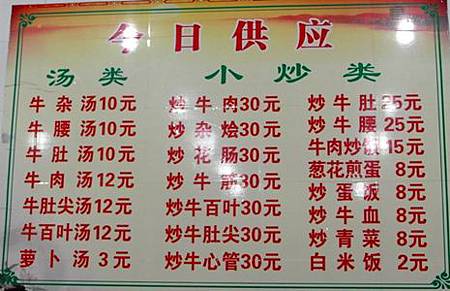 今日供应
汤类 小炒类
牛杂汤10元 炒牛肉30元 炒牛肚25元
牛腰汤10元 炒杂烩30元 炒牛腰25元
牛肚汤10元 炒花肠30元 牛肉炒饭15元
牛肉汤12元 炒牛筋30元 葱花煎蛋 8元
牛肚尖汤12元 炒牛百叶30元 炒蛋饭 8元
牛百叶汤12元 炒牛肚尖30元 炒牛血 8元
萝卜汤 3元 炒牛心管30元 炒青菜 8元
白米饭 2元